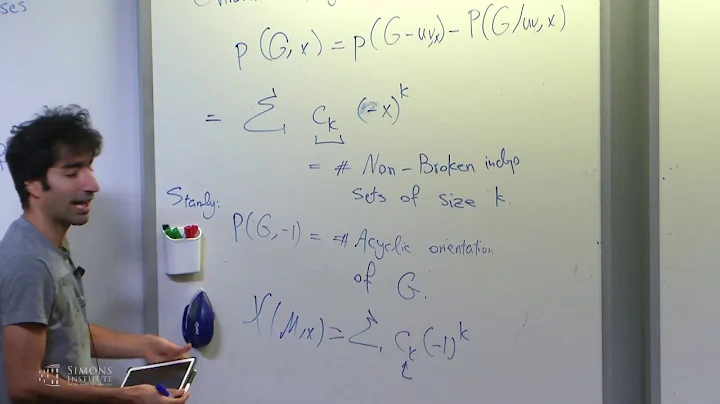 ses
P(G,x) = P(G-uv,x) - P(G/uv,x)
= Σ c_k (-x)^k
= # Non-Broken indep
sets of size k.
Stanly:
P(G,-1) = # Acyclic orientation
of G.
χ(M,x) = Σ c_k (-1)^k
SIMONS
INSTITUTE